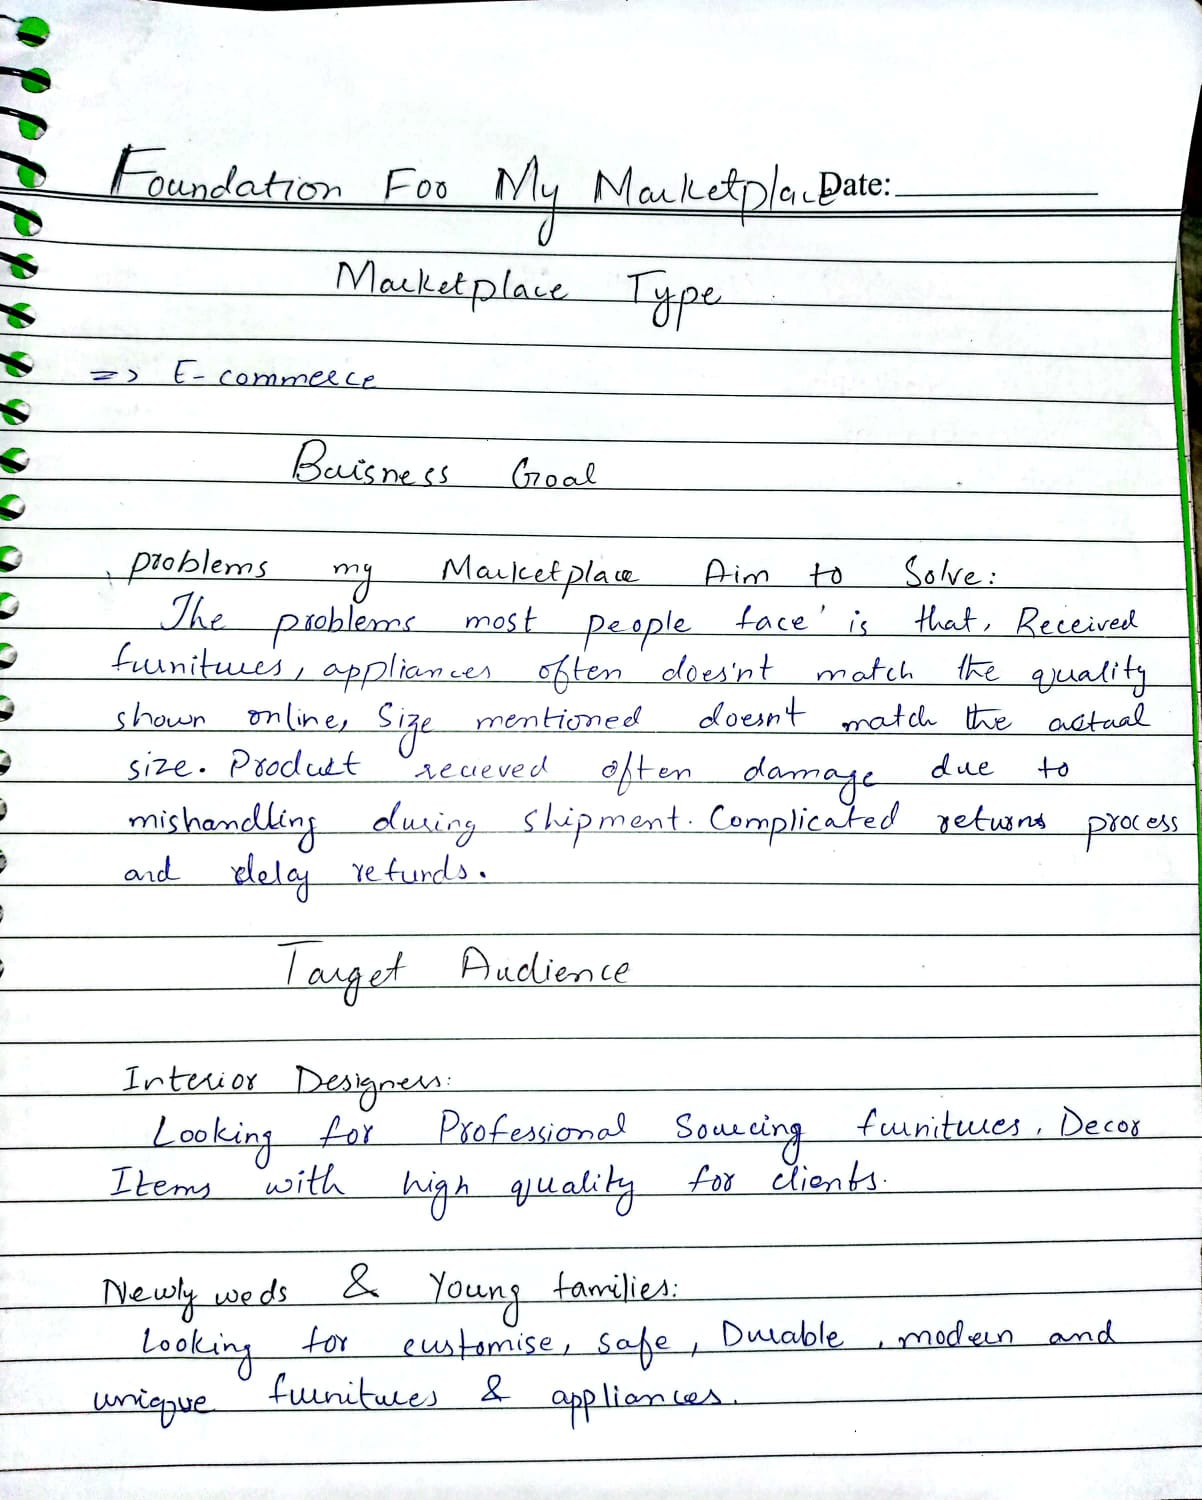 Foundation For My Marketplace Date:
Marketplace Type
=> E-commerce
Buisness Goal
problems my Marketplace Aim to Solve:
The problems most people face is that, Received
furnitures, appliances often does'nt match the quality
shown online, Size mentioned doesn't match the actual
size. Product recieved often damage due to
mishandling during shipment. Complicated returns process
and delay refunds.
Target Audience
Interior Designers:
Looking for Professional Sourcing furnitures, Decor
Items with high quality for clients.
Newly weds & Young families:
Looking for customise, safe, Durable, modern and
unique furnitures & appliances.